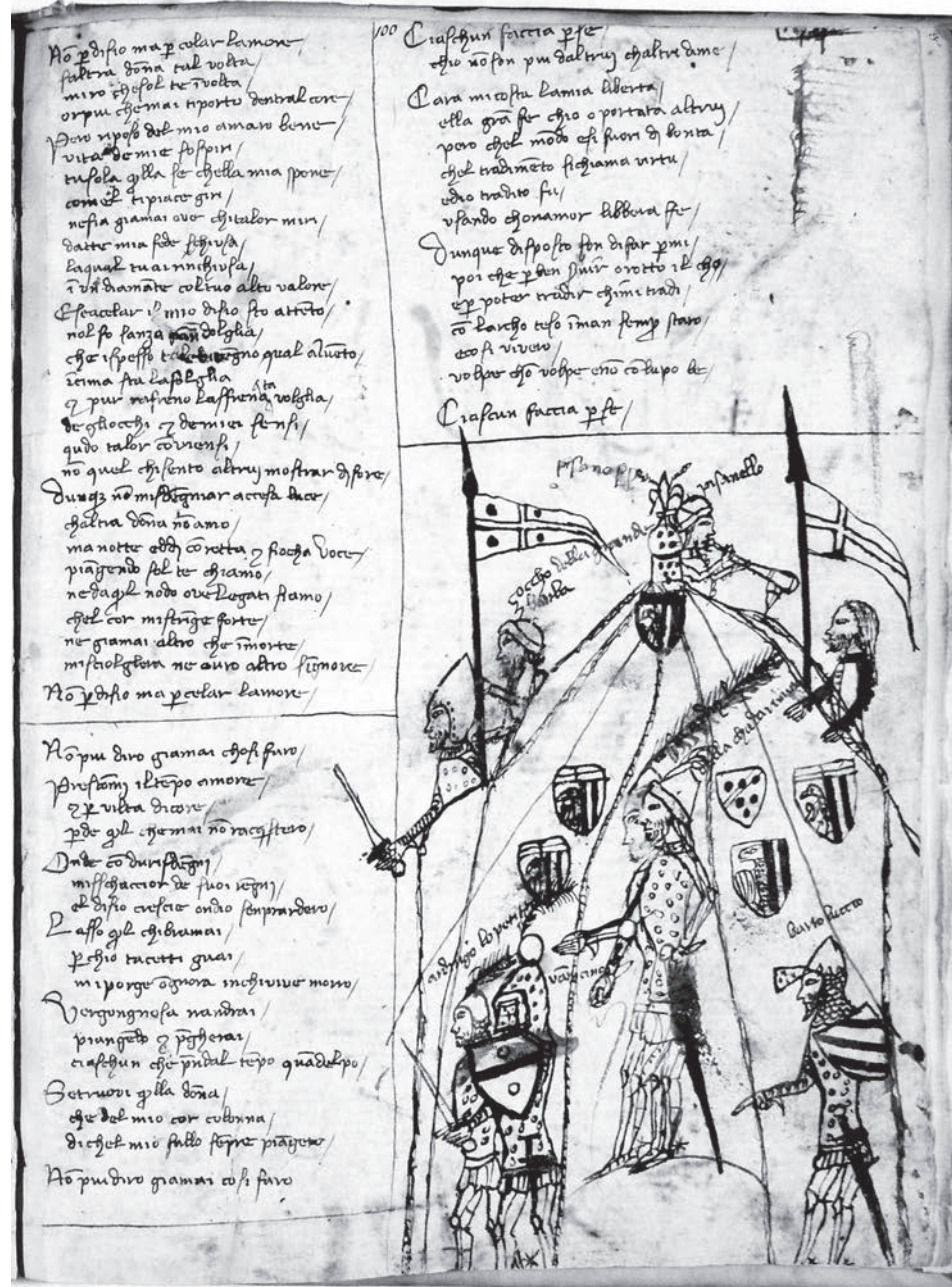 No p disio ma p celar lamore
saltra dona tal volta
miro chesol te ivolta
orpiu chemai tiporto dentral core
Pero riposo del mio amaro bene
vita de mie sospiri
tusola qlla se chella mia spene
comel tipiace giri
nesia giamai ove chitalor miri
datte mia fede schiusa
laqual tuai rinchiusa
i un diamate coltuo alto valore
Eseacelar il mio disio sto atteto
nol fo sanza gran dolglia
che ispesso qual alveto
icima sta lafolglia
et pur rafreno laffrenata volglia
degliocchi et demiei sensi
qudo talor coviensi
no quel chisento altruj mostrar difore
Dunqz no misdegniar accesa luce
chaltra dona no amo
ma notte eddi corotta et fiocha voce
piagendo sol te chiamo
nedaql nodo ove legati siamo
chel cor mistringe forte
ne giamai altro che imorte
misciolglera ne avro altro signore
No p disio ma p celar lamore
No piu diro giamai chosi faro
Prestomi il tepo amore
et p vilta dicore
pde ql chemai no racqstero
Onde co durisdegni
mischaccior de suoi regni
el disio crescie ondio senprardero
Lasso ql chibramai
pchio tacetti guai
miporge ognora inchivive morro
Vergongnosa nandrai
piangedo et pgherai
ciaschun che pndal tepo quadelpo
Setruovi qlla dona
che del mio cor colonna
dichel mio fallo sepre piagero
No piu diro giamai cosi faro
100
Ciaschun faccia p se
chio no son piu daltruj chaltri dime
Cara micosta lamia liberta
ella gra fe chio o portata altruj
pero chel modo esi fuori di bonta
chel tradimeto sichiama virtu
edio tradito fu
usando chonamor libbera fe
Dunque disposto son difar p mi
poi che p ben svir o rotto il cho
e p poter tradir chimi tradi
co larcho teso iman semp staro
ecosi vivero
volpe cho volpe eno colupo be
Ciascun faccia p se
pisano
pisanello
ciocho della grande
barba
da chadarimini
arrigo lovenis
vercino
bartoluccio